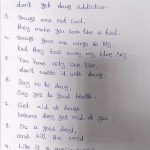 don't get drug addiction.
3. Drugs are not cool.
they make you look like a fool.
4. Drugs give me wings to fly,
but they took away my blue sky.
5. You have only one life,
don't waste it with drugs.
6. Say no to drug,
Say yes to good health.
7. Get rid of drugs
before they get rid of you.
8. Do a good deed,
and kill the weed.